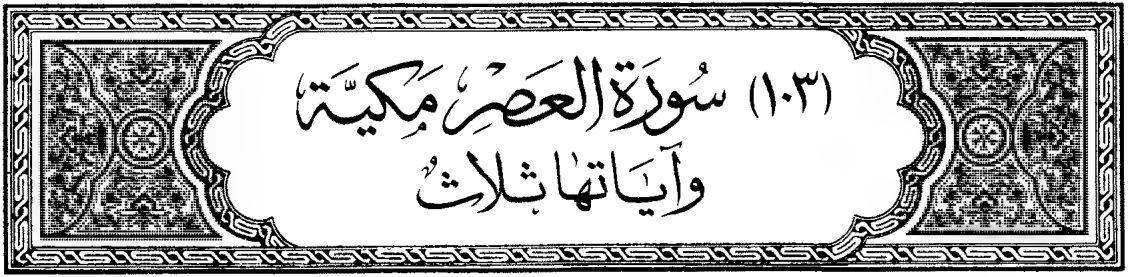 (١٠٣) سُورَة العَصْرِ مَكيَّة
وَآيَاتهَا ثَلاثٌ